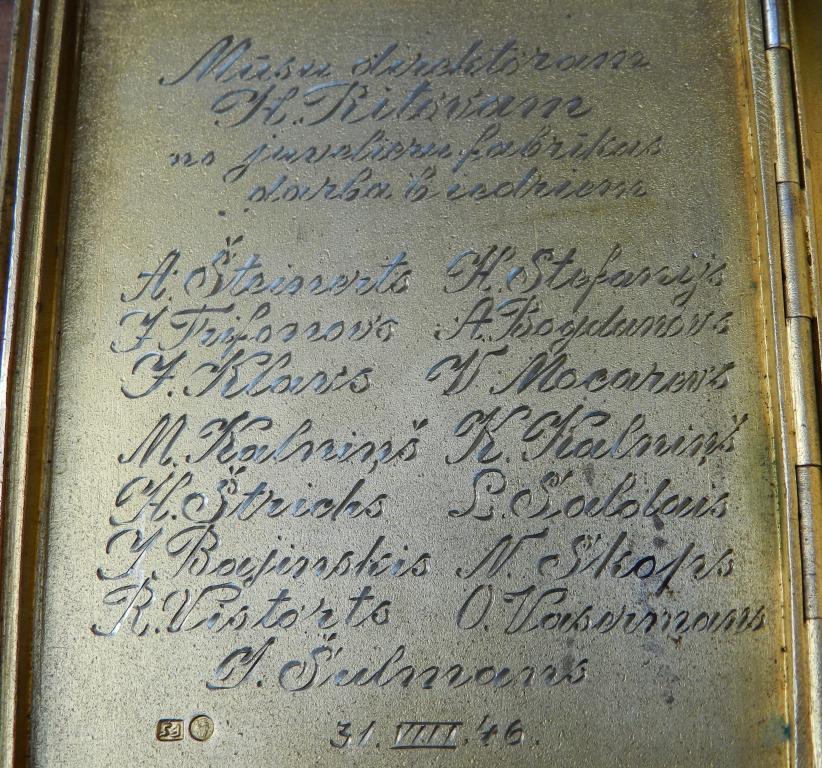 Mūsu direktōram
H. Ritovam
no juvelieru fabrikas
darba biedriem
A. Šteinerts H. Stefanijs
J. Trifonovs A. Bogdanovs
J. Klavs V. Mocarevs
M. Kalniņš K. Kalniņš
H. Štrichs L. Šalolais
J. Bajinskis N. Skops
R. Vistorts O. Vasermans
J. Šulmans
31. VIII. 46.